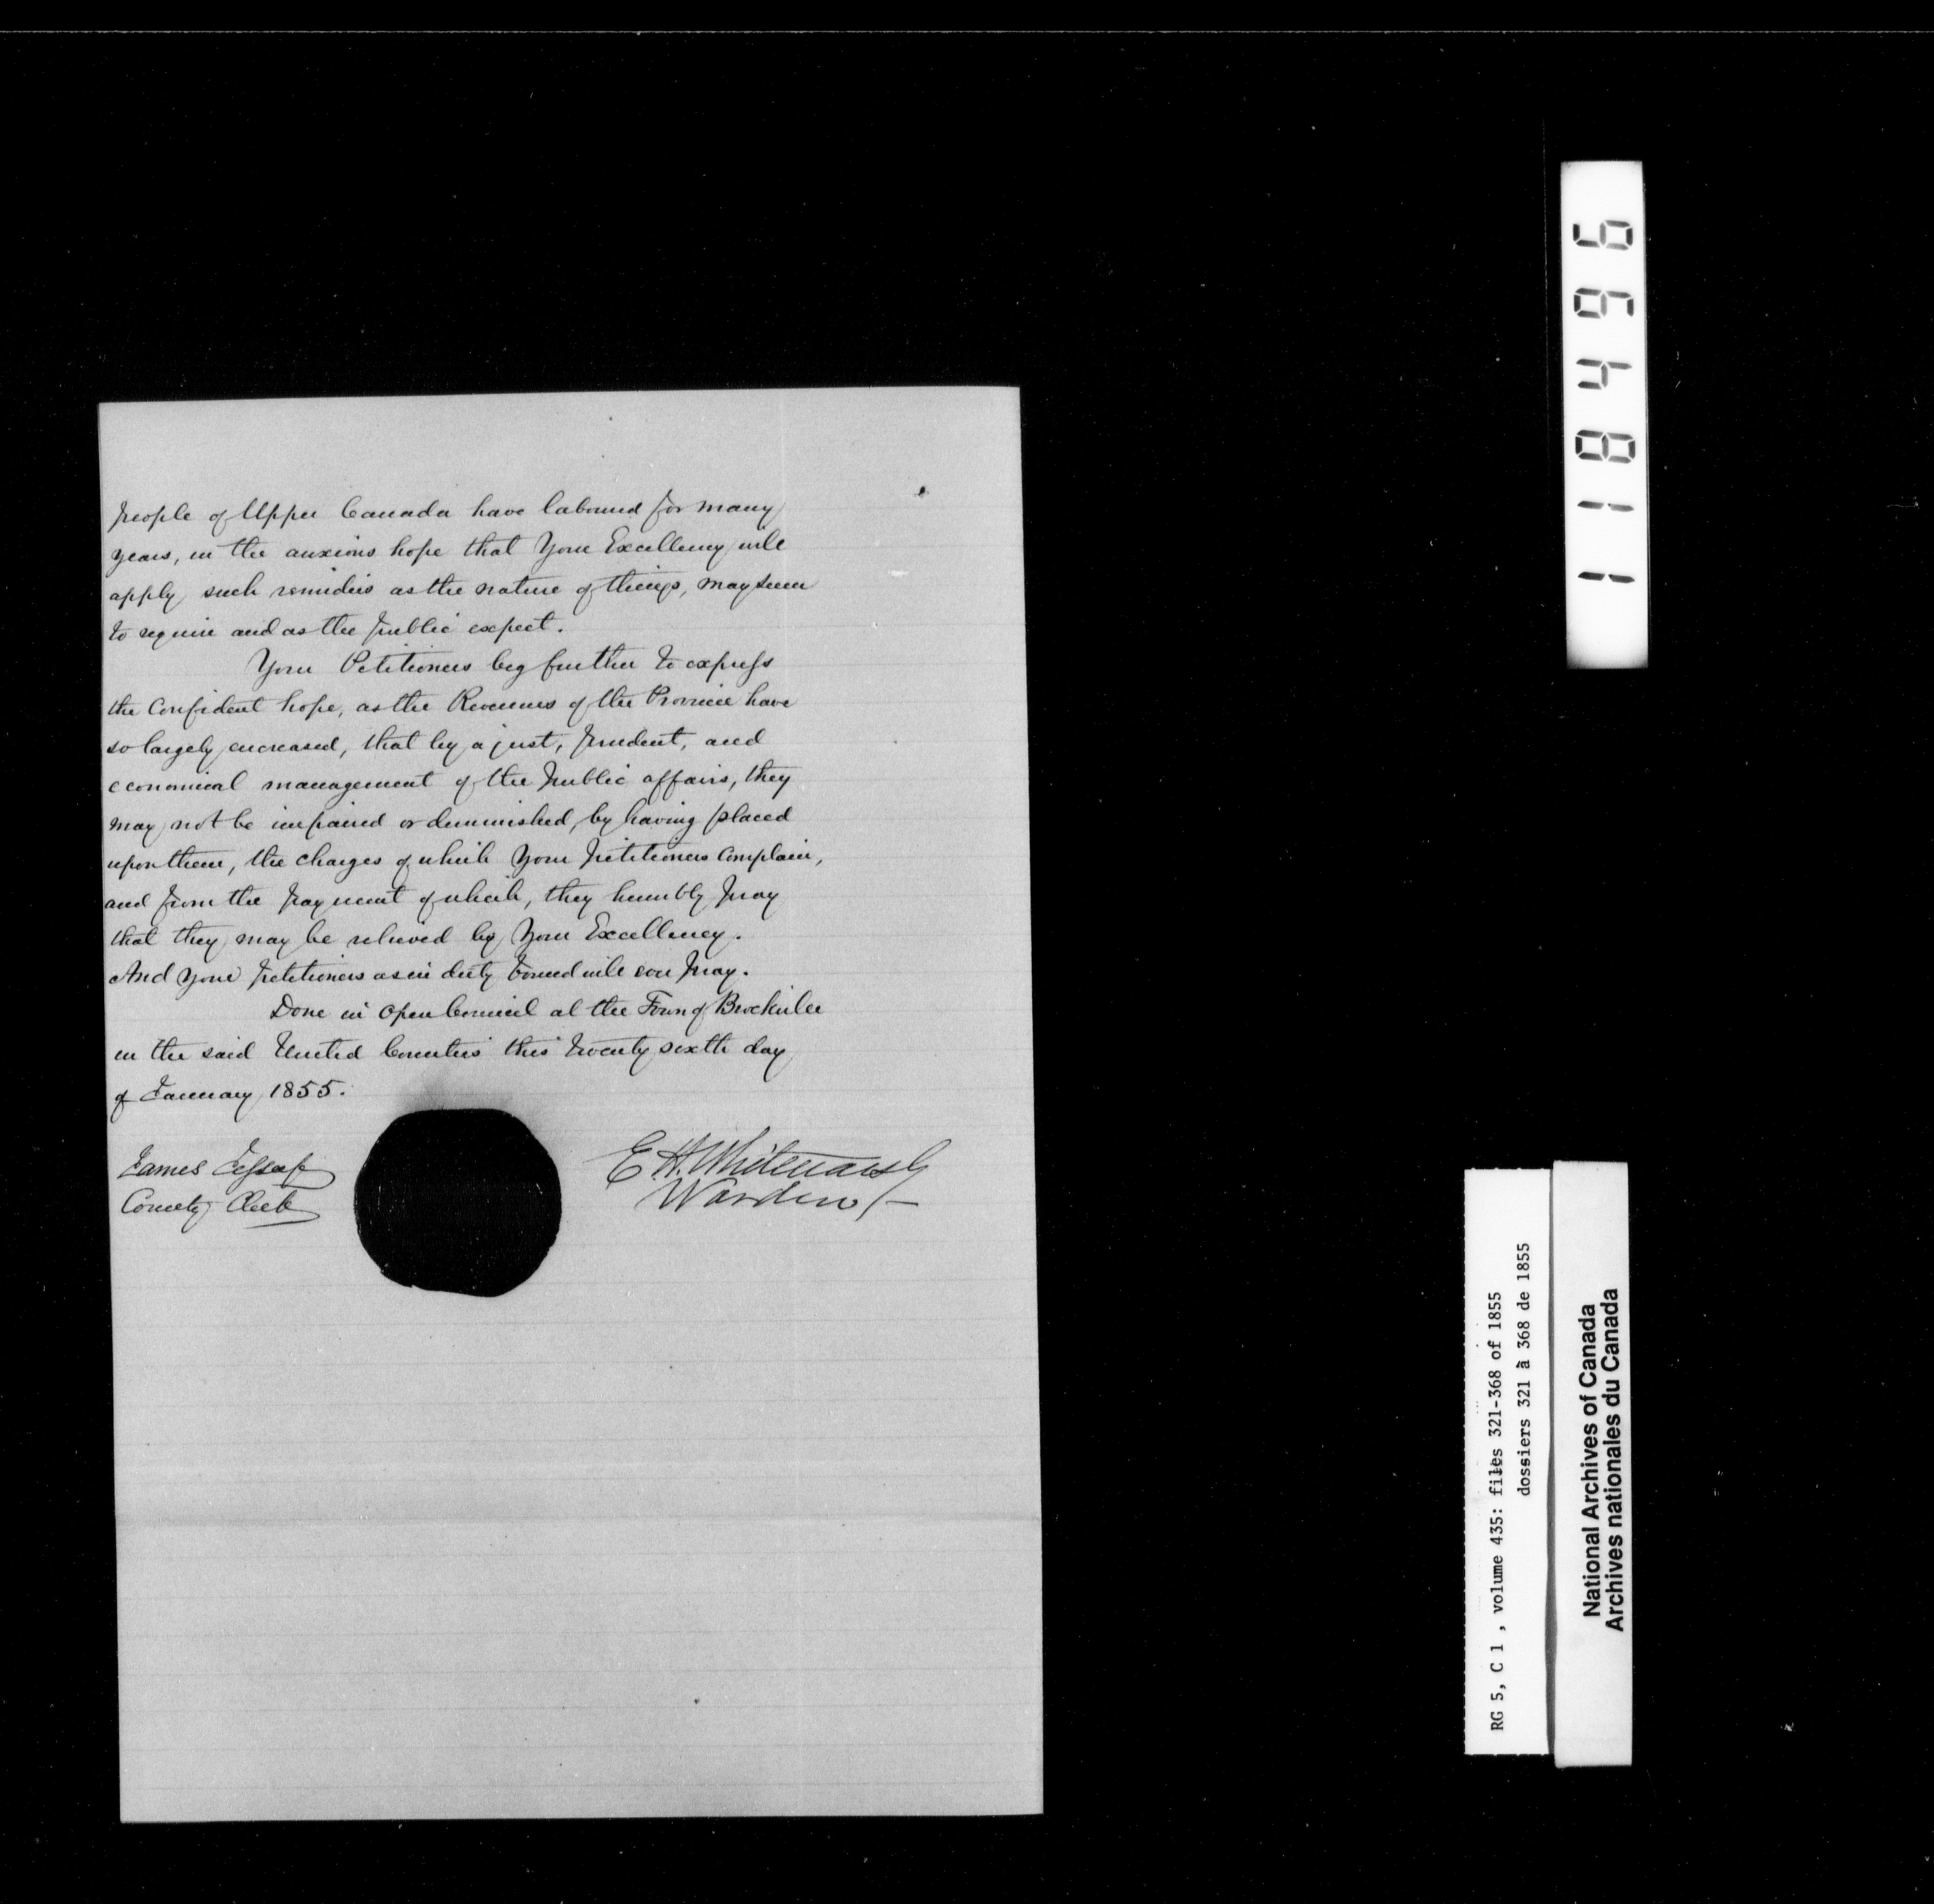 people of Upper Canada have laboured for many
years, in the anxious hope that Your Excellency will
apply such remidies as the nature of things, may seem
to require and as the public expect.
Your Petitioners beg further to express
the Confident hope, as the Revenues of the Province have
so largely encreased, that by a just, prudent, and
economical management of the public affairs, they
may not be impaired or diminished, by having placed
upon them, the charges of which Your petitioners Complain,
and from the payment of which, they humbly pray
that they may be relieved by Your Excellency.
And Your petitioners as in duty bound will ever pray.
Done in Open Council at the Town of Brockville
in the said United Counties this twenty sixth day
of January 1855.
James Jessup
County Clerk
E. H. Whitmarsh
Warden
118496
RG 5, C 1 , volume 435: files 321-368 of 1855
dossiers 321 à 368 de 1855
National Archives of Canada
Archives nationales du Canada